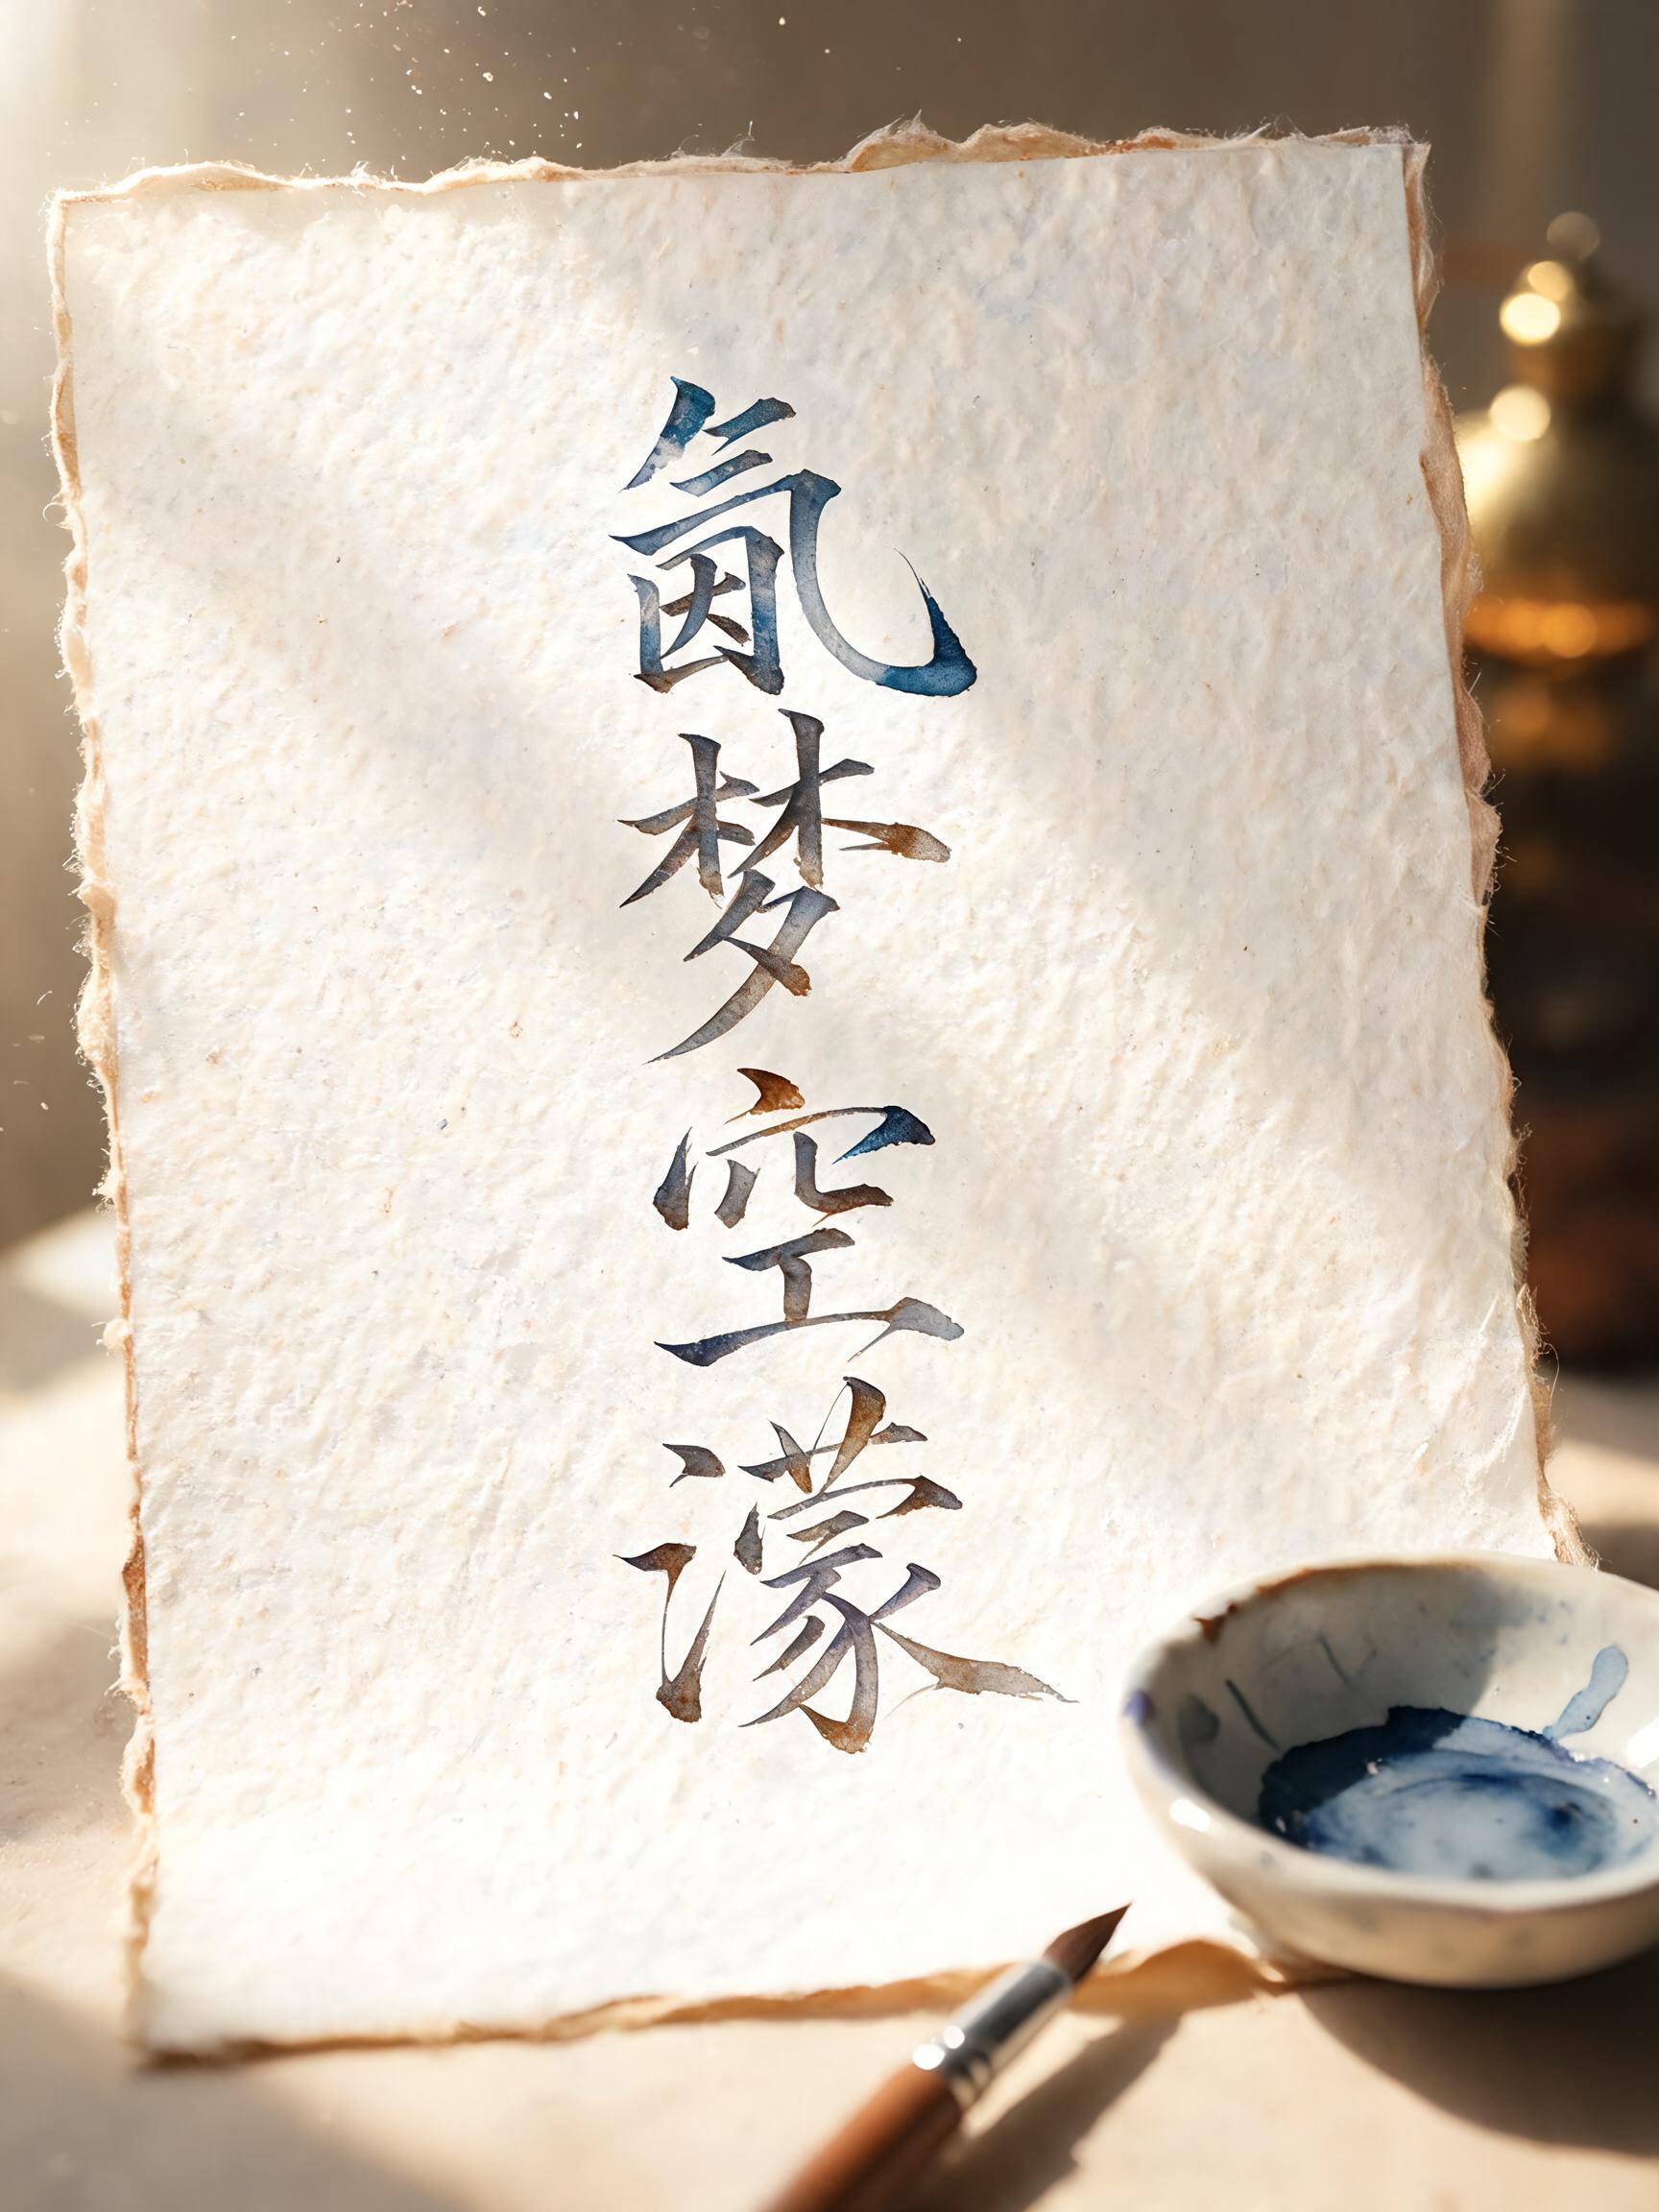 氤梦空濛